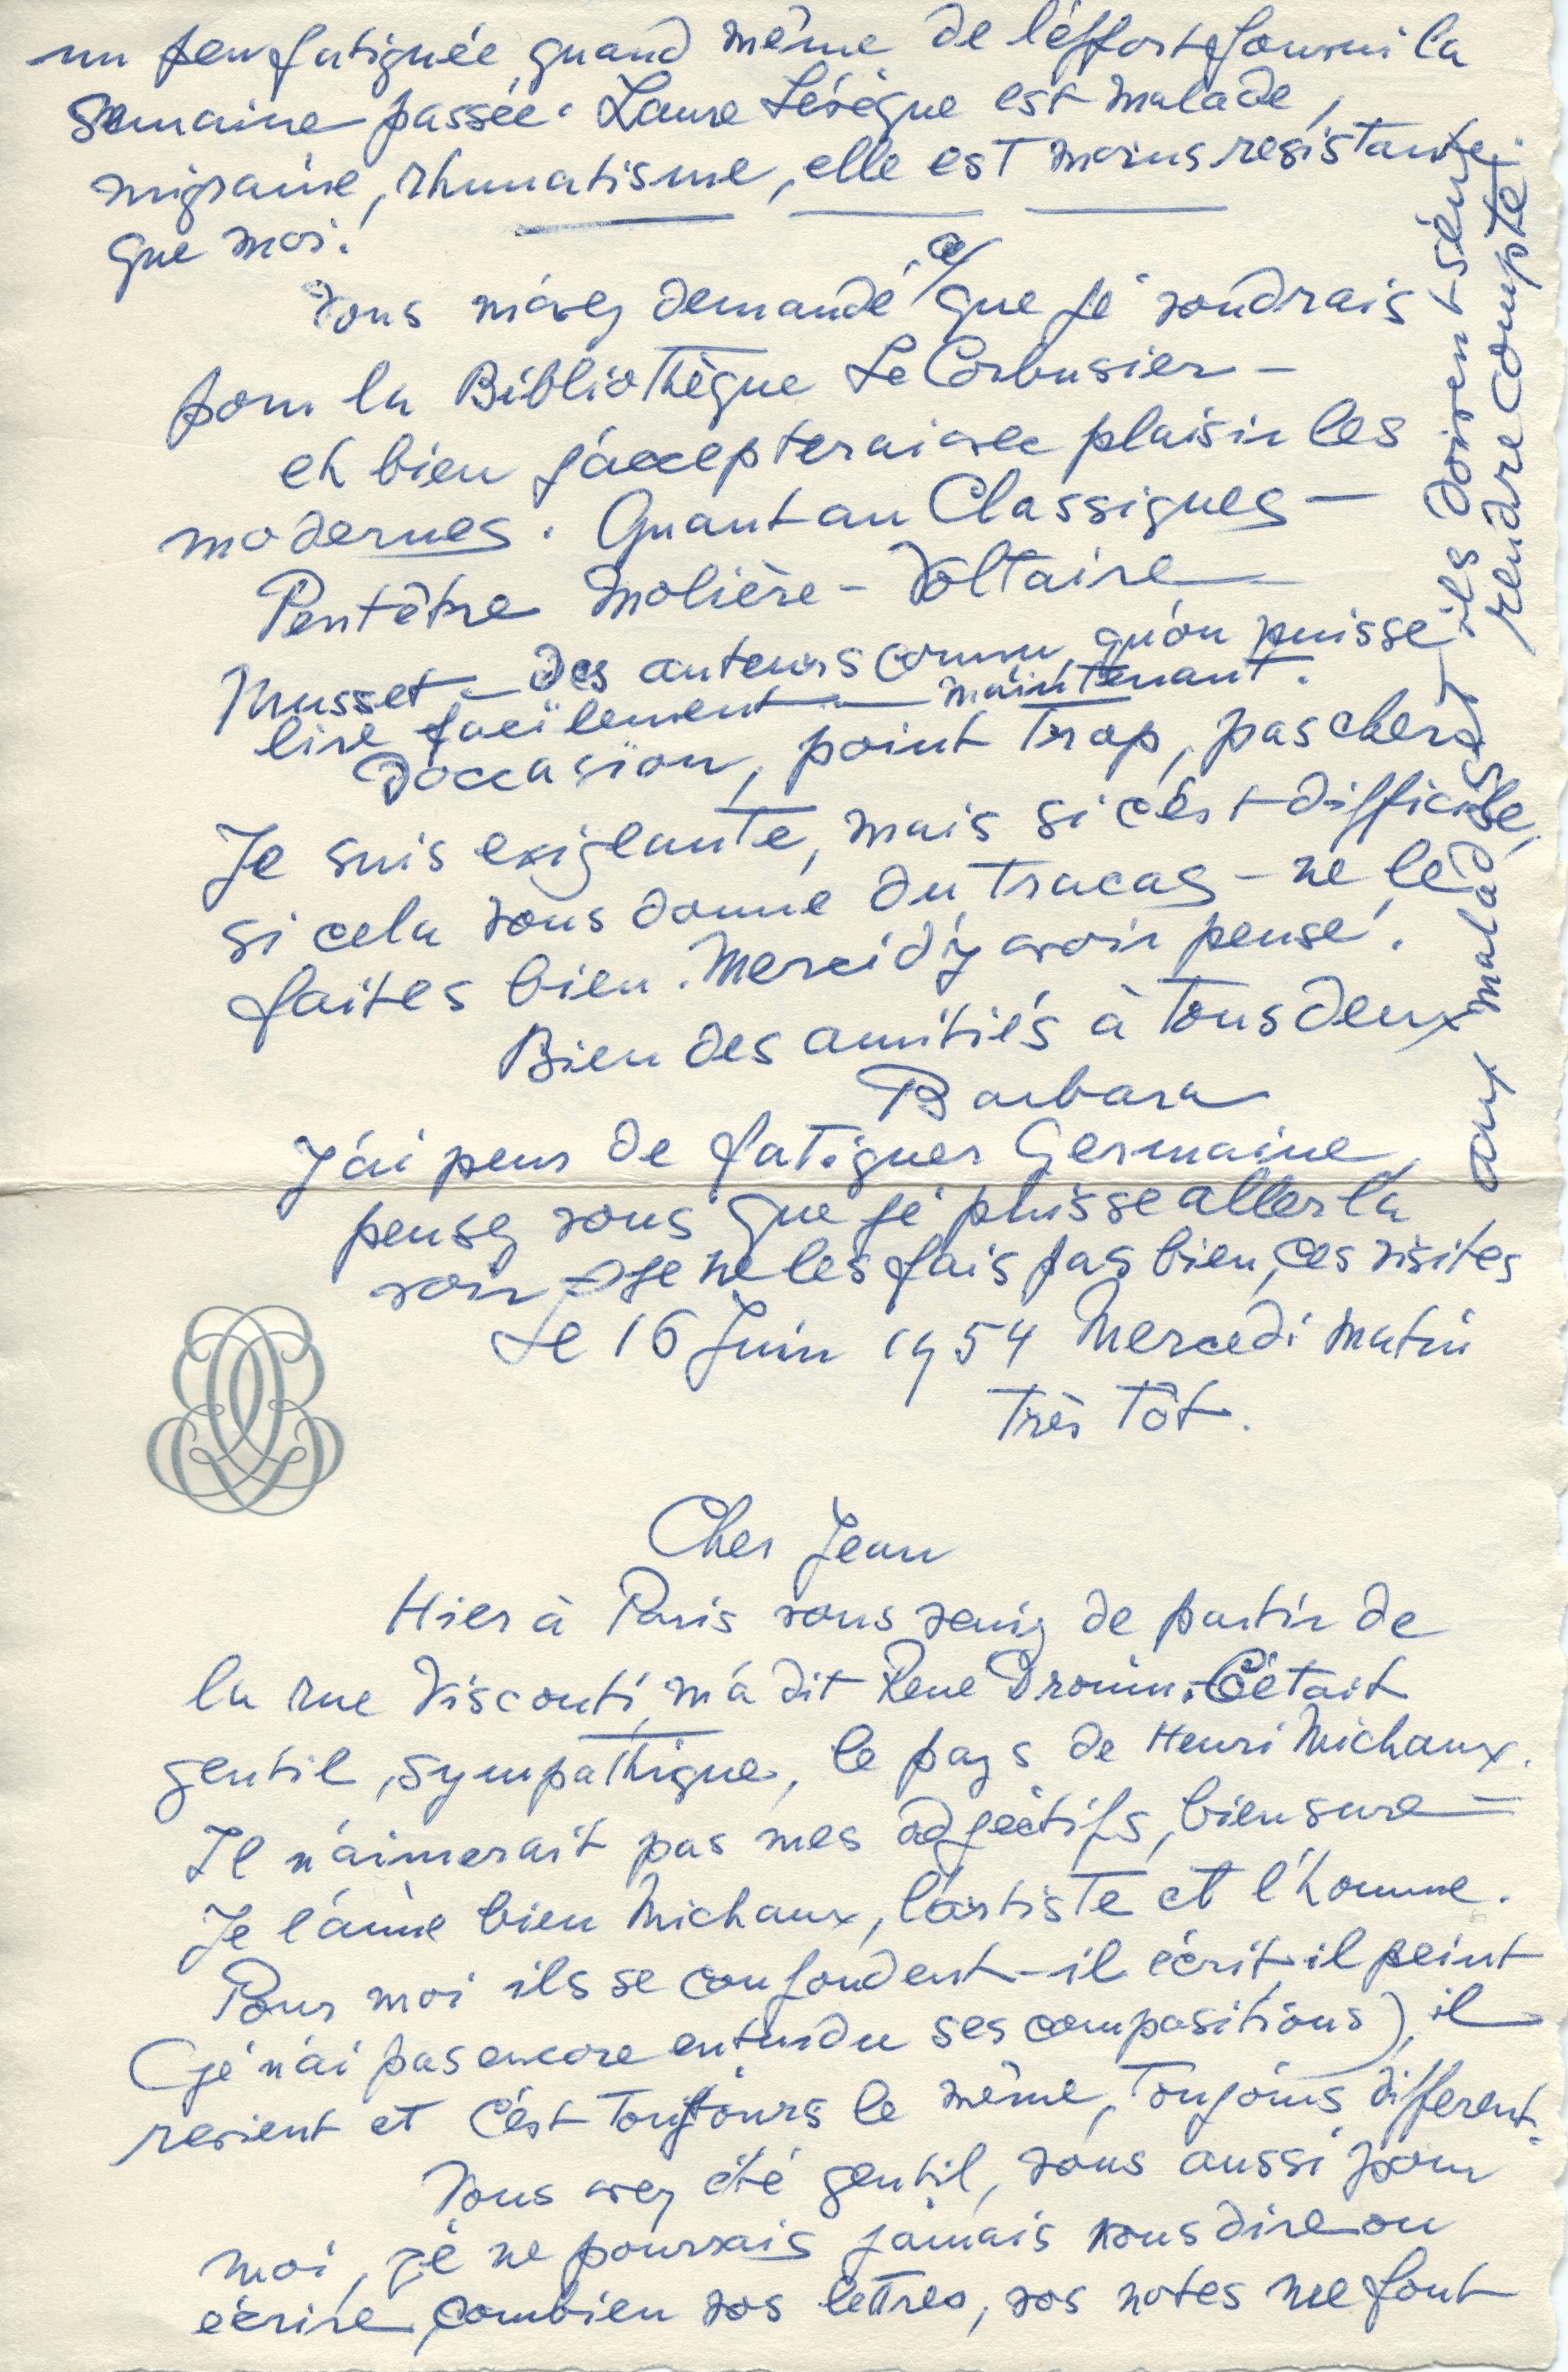 un peu fatiguée, quand même de l'éffort fourni la
semaine passée. Laure Lévèque est malade,
migraine, rhumatisme, elle est moins resistante
que moi.
Vous m'avez demandé ce que je voudrais
pour la Bibliothèque Le Corbusier —
eh bien j'accepterai avec plaisir les
modernes. Quant au Classiques —
Peutêtre Molière - Voltaire
Musset — des auteurs connu, qu'on puisse
lire facilement — maintenant.
d'occasion, point trop, pas chers
Je suis exigeante, mais si c'est difficile,
si cela vous donne du tracas - ne le
faites bien. Merci d'y avoir pensé.
Bien des amitiés à tous deux
Barbara
J'ai peur de fatiguer Germaine,
pensez vous que je puisse aller la
voir — je ne les fais pas bien, ces visites
aux malades — ils doivent s'en
rendre compte.
Le 16 Juin 1954 Mercedi matin
très tôt.
Cher Jean
Hier à Paris vous veniez de partir de
la rue Visconti, m'a dit Rene Drouin. C'était
gentil, sympathique, le pays de Henri Michaux.
Il n'aimerait pas mes adjectifs, bien sure —
Je l'aime bien Michaux, l'artiste et l'homme.
Pour moi ils se confondent - il écrit, il peint
(je n'ai pas encore entendu ses compositions), il
revient et c'est toujours le même, toujours different.
Vous avez été gentil, vous aussi pour
moi, je ne pourrais jamais vous dire ou
écrire, combien vos lettres, vos notes me font